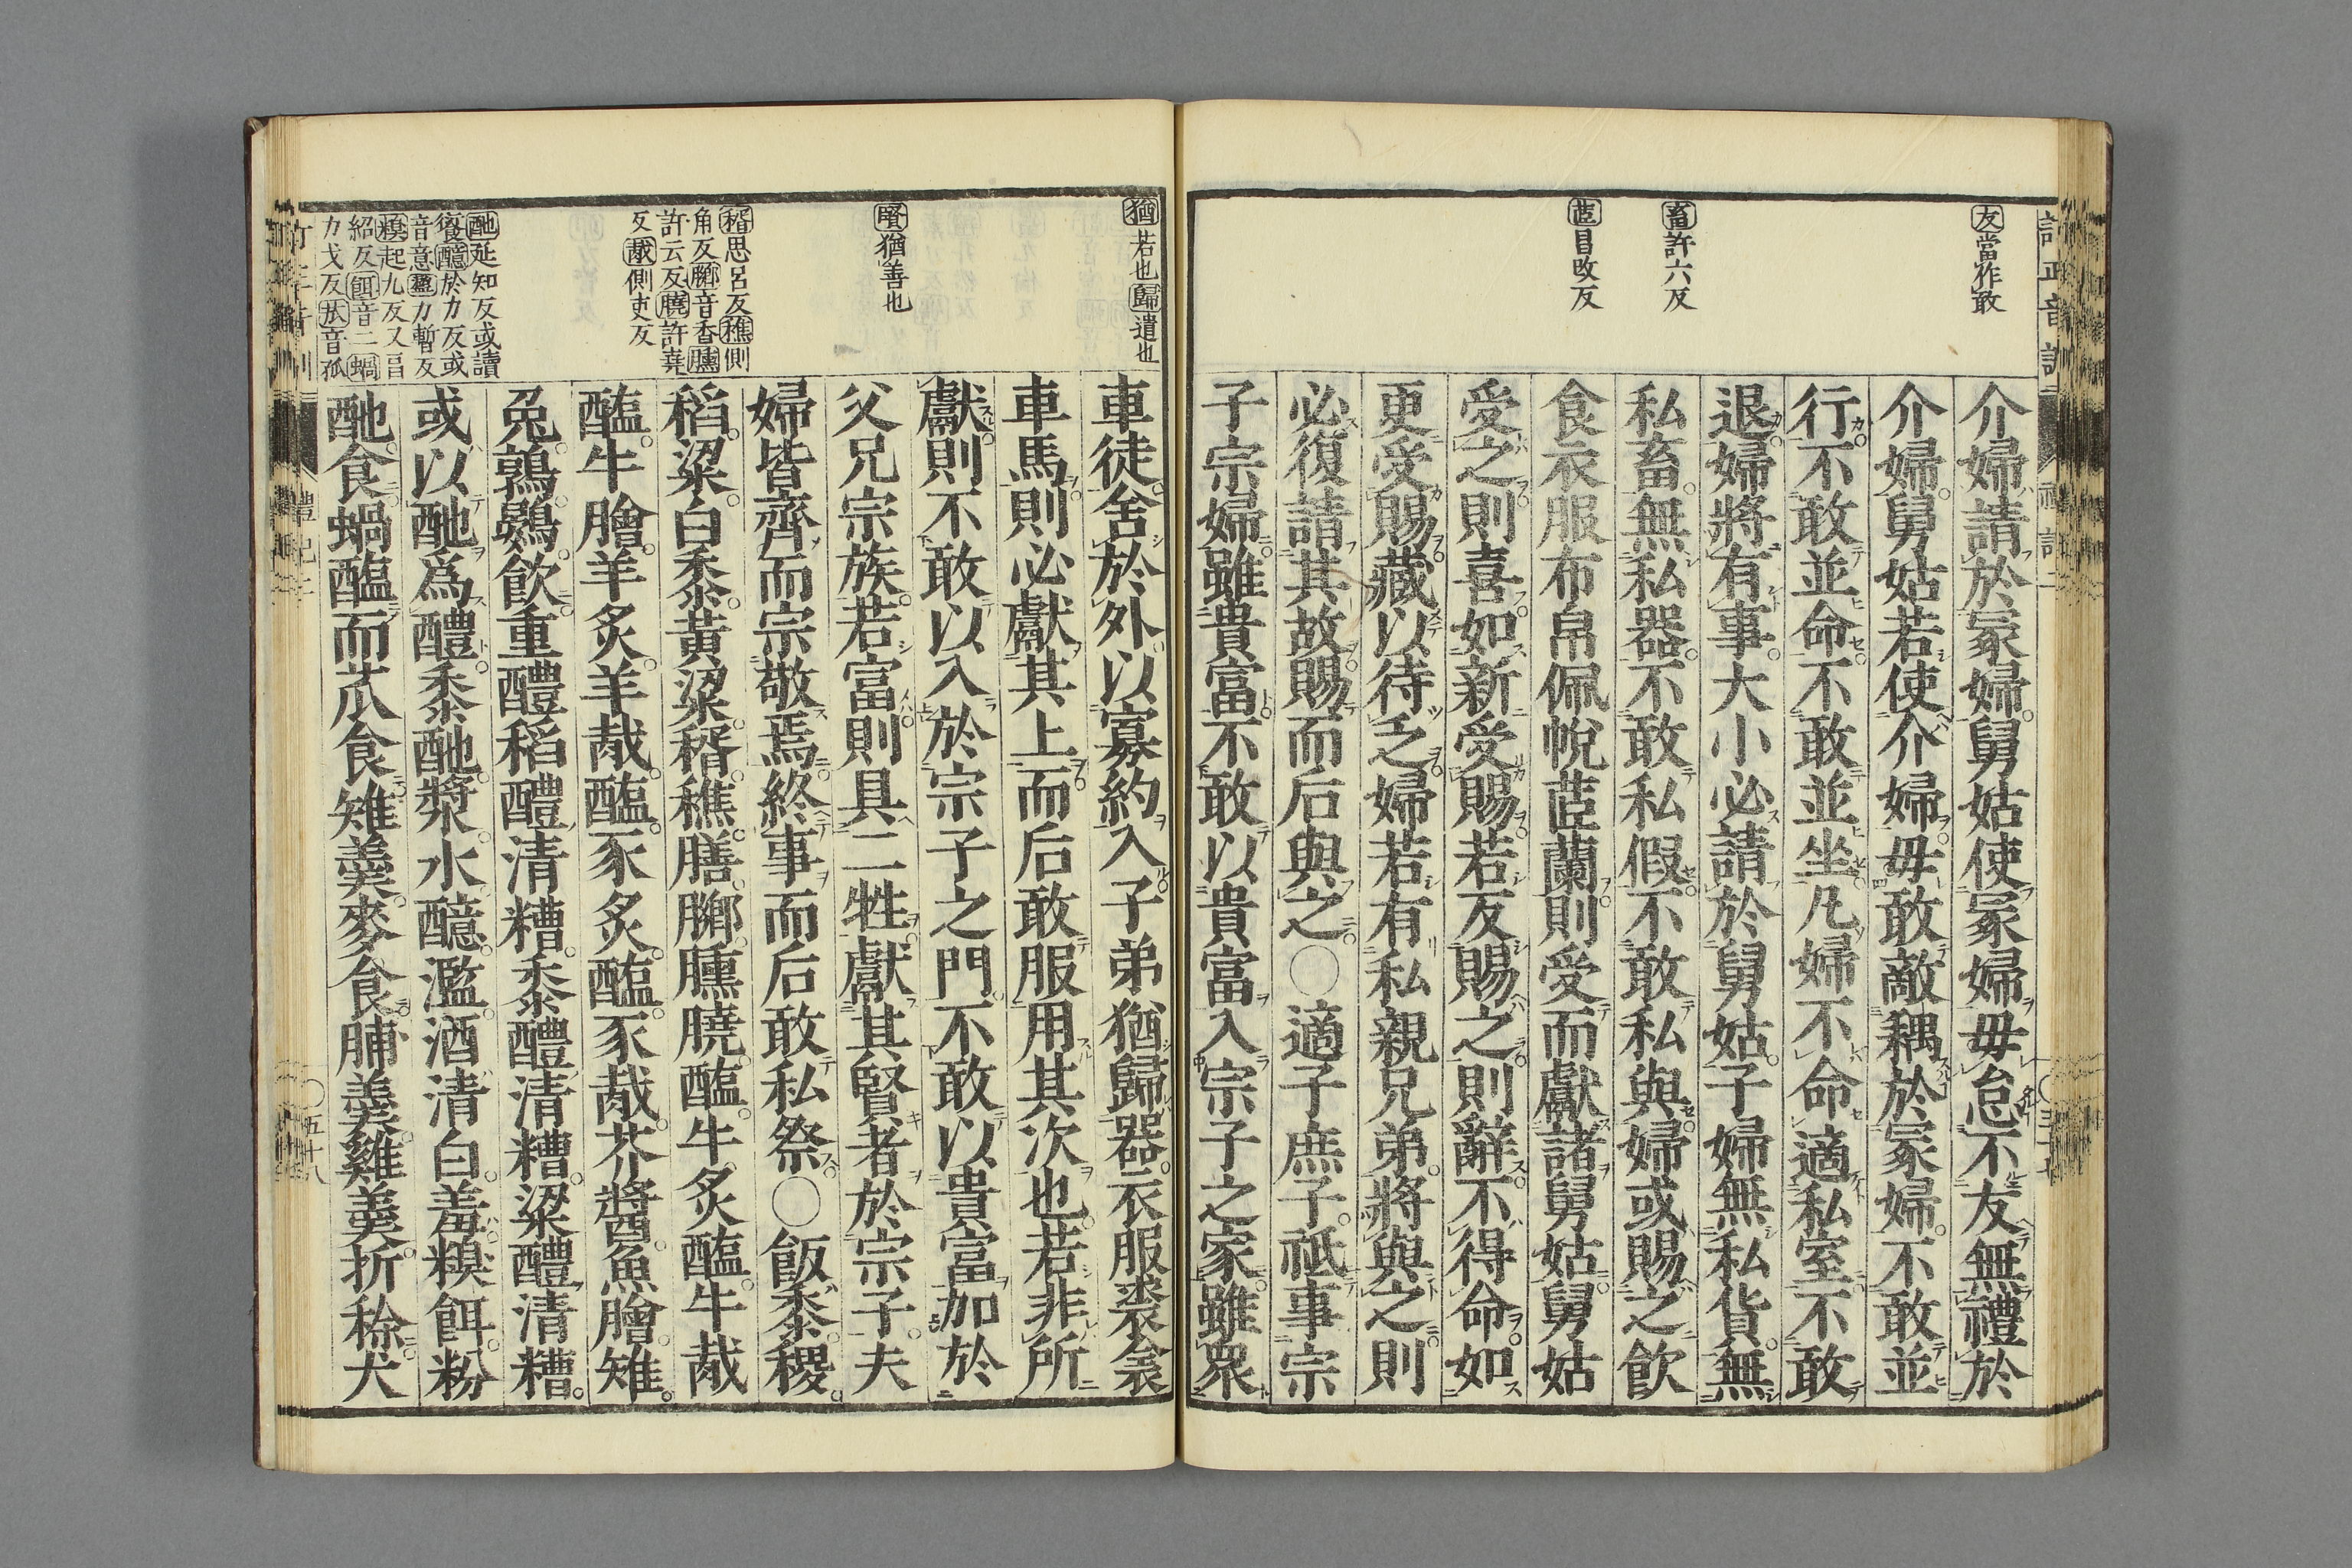 友當作敢
畜許六反
茝昌改反
介婦請於冢婦舅姑使冢婦毋怠不友無禮於
介婦舅姑若使介婦毋敢敵耦於冢婦不敢並
行不敢並命不敢並坐凡婦不命適私室不敢
退婦將有事大小必請於舅姑子婦無私貨無
私畜無私器不敢私假不敢私與婦或賜之飲
食衣服布帛佩帨茝蘭則受而獻諸舅姑舅姑
受之則喜如新受賜若反賜之則辭不得命如
更受賜藏以待乏婦若有私親兄弟將與之則
必復請其故賜而后與之○適子庶子祇事宗
子宗婦雖貴富不敢以貴富入宗子之家雖衆
猶若也歸遺也
賢猶善也
稰思呂反穛側
角反膷音香臐
許云反膮許堯
反胾側吏反
酏延知反或讀
後醷於力反或
音意濫力暫反
糗起九反又昌
紹反餌音二蝸
力戈反苽音孤
車徒舍於外以寡約入子弟猶歸器衣服裘衾
車馬則必獻其上而后敢服用其次也若非所
獻則不敢以入於宗子之門不敢以貴富加於
父兄宗族若富則具二牲獻其賢者於宗子夫
婦皆齊而宗敬焉終事而后敢私祭○飯黍稷
稻粱白黍黃粱稰穛膳膷臐膮醢牛炙醢牛胾
醢牛膾羊炙羊胾醢豕炙醢豕胾芥醬魚膾雉
兔鶉鷃飲重醴稻醴清糟黍醴清糟粱醴清糟
或以酏爲醴黍酏漿水醷濫酒清白羞糗餌粉
酏食蝸醢而苽食雉羹麥食脯羹雞羹折稌犬
禮記二
五十八